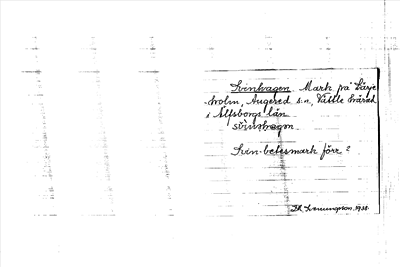 Svinhagen. Mark på Lärje-
holm, Angered s:n, Vättle härad
i Älfsborgs län.
svinhagen.
Svin-betesmark förr?
1938.